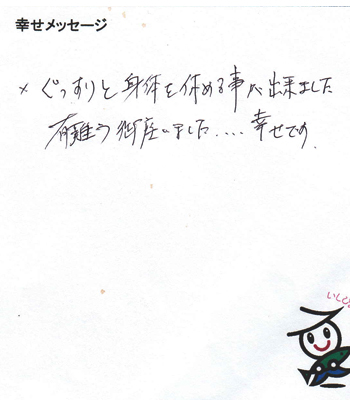 幸せメッセージ
× ぐっすりと身体を休める事が出来ました
有難う御座いました....幸せです